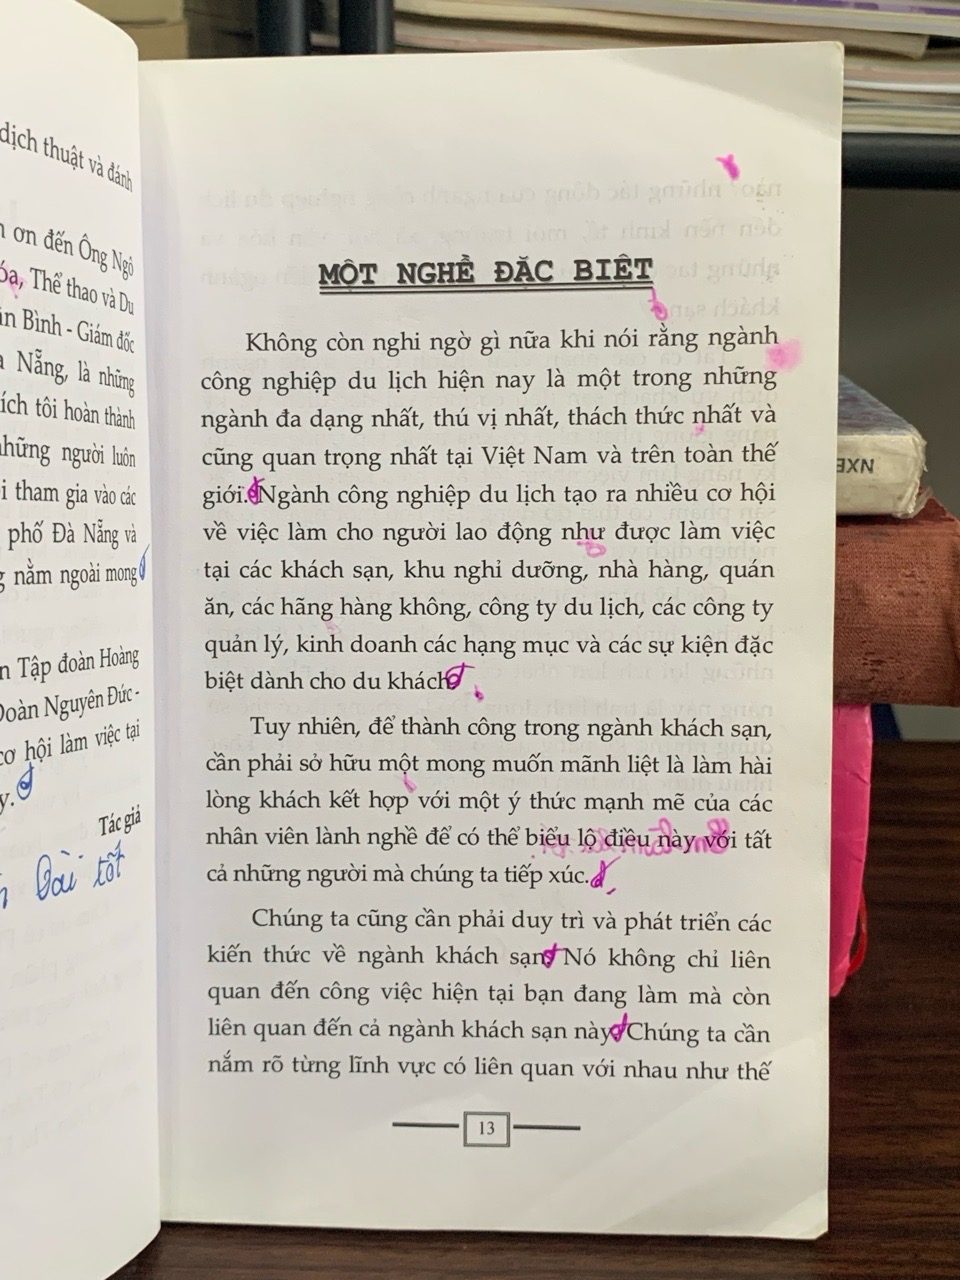 dịch thuật và đánh
ơn đến Ông Ngô
Thể thao và Du
Bình - Giám đốc
Nẵng, là những
ích tôi hoàn thành
những người luôn
tham gia vào các
phố Đà Nẵng và
nằm ngoài mong
Tập đoàn Hoàng
Đoàn Nguyên Đức -
cơ hội làm việc tại
Tác giả
tốt
MỘT NGHỀ ĐẶC BIỆT
Không còn nghi ngờ gì nữa khi nói rằng ngành
công nghiệp du lịch hiện nay là một trong những
ngành đa dạng nhất, thú vị nhất, thách thức nhất và
cũng quan trọng nhất tại Việt Nam và trên toàn thế
giới. Ngành công nghiệp du lịch tạo ra nhiều cơ hội
về việc làm cho người lao động như được làm việc
tại các khách sạn, khu nghỉ dưỡng, nhà hàng, quán
ăn, các hãng hàng không, công ty du lịch, các công ty
quản lý, kinh doanh các hạng mục và các sự kiện đặc
biệt dành cho du khách.
Tuy nhiên, để thành công trong ngành khách sạn,
cần phải sở hữu một mong muốn mãnh liệt là làm hài
lòng khách kết hợp với một ý thức mạnh mẽ của các
nhân viên lành nghề để có thể biểu lộ điều này với tất
cả những người mà chúng ta tiếp xúc.
Chúng ta cũng cần phải duy trì và phát triển các
kiến thức về ngành khách sạn. Nó không chỉ liên
quan đến công việc hiện tại bạn đang làm mà còn
liên quan đến cả ngành khách sạn này. Chúng ta cần
nắm rõ từng lĩnh vực có liên quan với nhau như thế
13
NXB